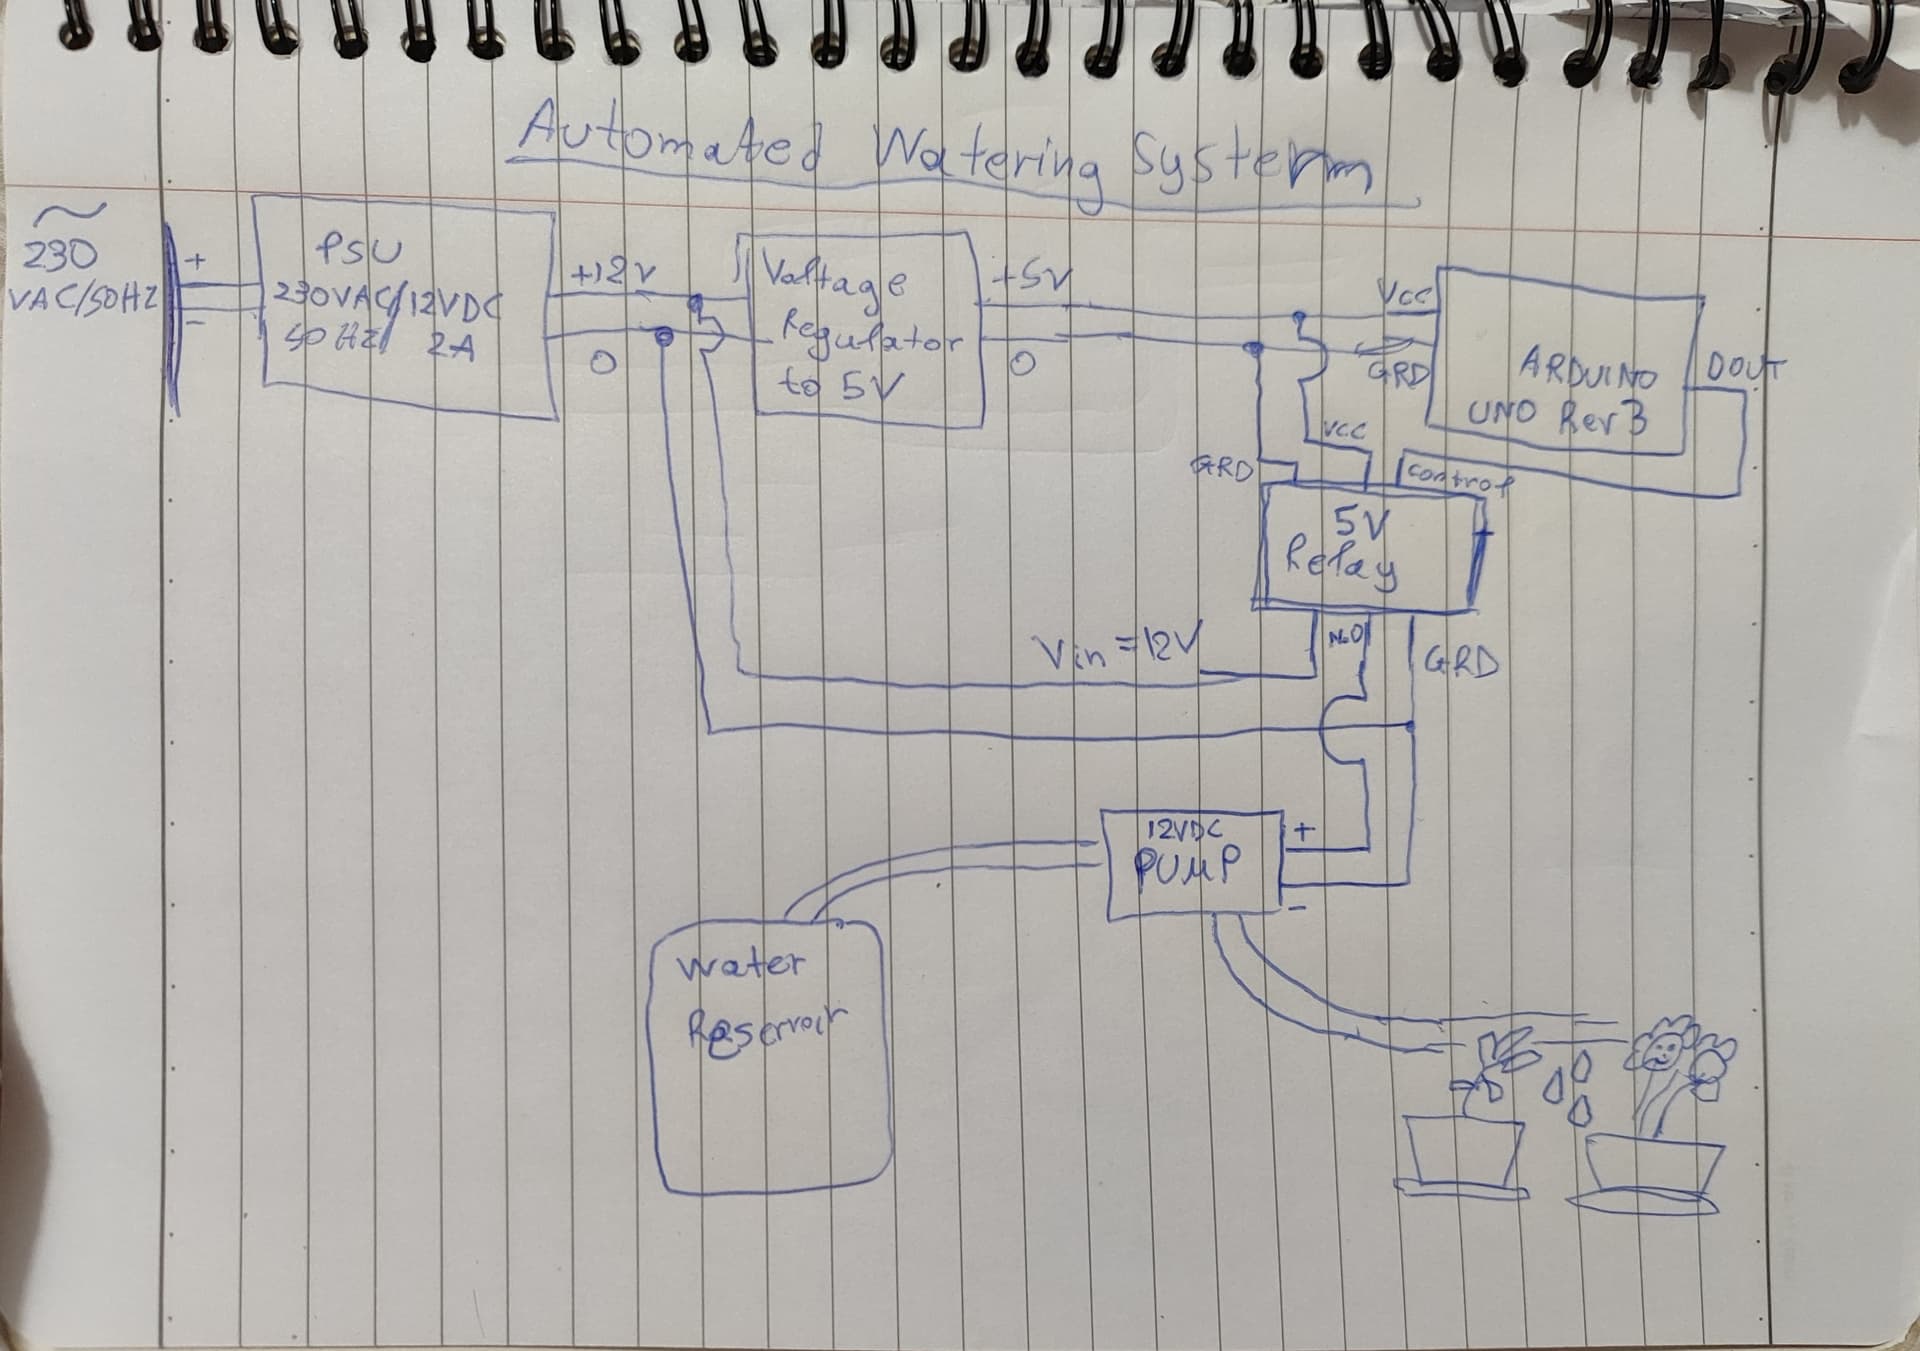 Automated Watering Systerm
~
230
VAC/50HZ
+
-
PSU
230VAC/12VDC
50HZ 2A
+12V
0
Voltage
Regulator
to 5V
+5V
0
Vcc
GRD
ARDUINO
UNO Rev3
DOUT
GRD
VCC
Control
5V
Relay
Vin = 12V
NO
GRD
12VDC
PUMP
+
-
Water
Reservoir